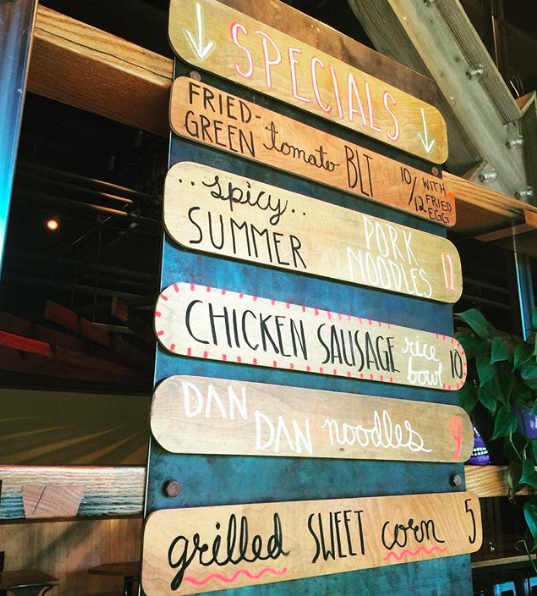 SPECIALS
FRIED-
GREEN tomato BLT 10/12 WITH FRIED EGG
..spicy..
SUMMER PORK
NOODLES 12
CHICKEN SAUSAGE rice bowl 10
DAN
DAN noodles 9
grilled SWEET corn 5